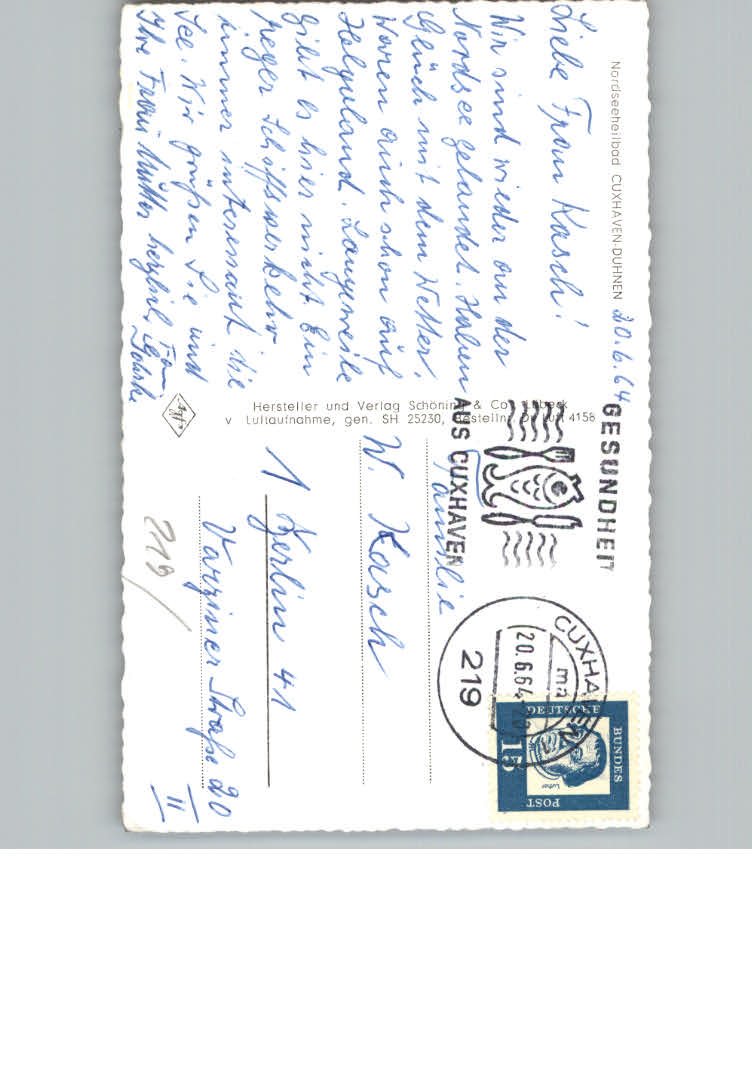 Nordseeheilbad CUXHAVEN-DUHNEN
20.6.64
Liebe Frau Kasch!
Wir sind wieder an der
Nordsee gelandet. Haben
Glück mit dem Wetter.
Waren auch schon auf
Helgoland. Langeweile
gibt es hier nicht. Ein
reger Schiffsverkehr
immer interessant die
See. Wir grüßen Sie und
Ihre Frau Mutter herzlich
Hersteller und Verlag Schöning & Co, Lübeck
v Luftaufnahme, gen. SH 25230, Bestellnr. 4158
Agfa
GESUNDHEIT
AUS CUXHAVEN
CUXHAVEN
ma
20.6.64
219
DEUTSCHE
BUNDES
POST
15
Luther
Familie
W. Kasch
1 Berlin 41
Varziner Straße 20
II
219